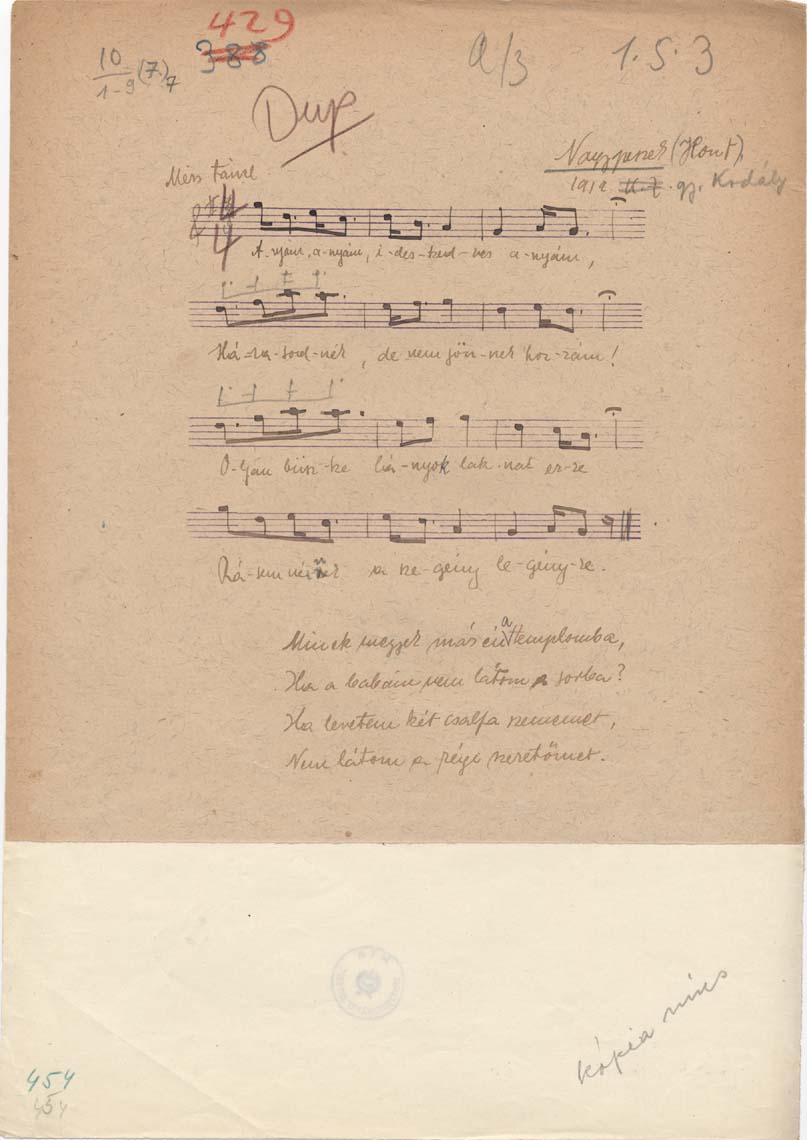 429
10 (7)7 388 A/3 1.5.3
1-9
Dup.
Nagypeszek (Hont)
1912 gy. Kodály
4
4
A-nyám, a-nyám, i-des-ked-ves a-nyám,
Há-za-sod-nék, de nem jön-nek hoz-zám!
O-lyan büsz-ke lá-nyok lak-nak er-re
Rá-sem néznek a sze-gény le-gény-re.
Minek megyek más én a templomba,
Ha a babám nem látom a sorba?
Ha levetem két csalfa szememet,
Nem látom a régi szeretőmet.
kópia nincs
454
454